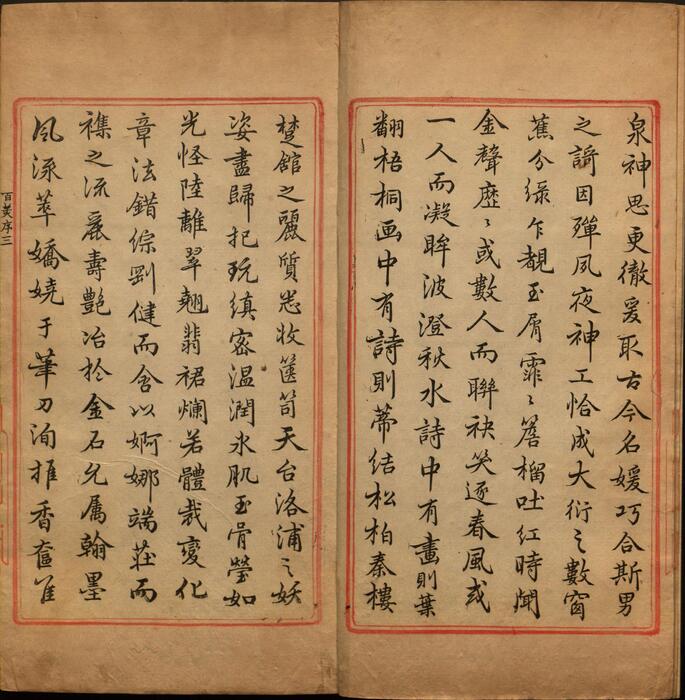 泉神思更徹爰取古今名媛巧合斯男
之謌因殫夙夜神工恰成大衍之數窗
蕉分綠乍覩玉屑霏〻簷榴吐紅時聞
金聲歷〻或數人而聯袂笑逐春風或
一人而凝眸波澄秋水詩中有畫則葉
翻梧桐画中有詩則蒂结松柏秦樓
楚館之麗質悉收篋笥天台洛浦之妖
姿盡歸把玩縝密溫潤氷肌玉骨瑩如
光怪陸離翠翹翡裙爛若體裁變化
章法錯綜剛健而含以婀娜端莊而
襍之流麗壽艷冶於金石允属翰墨
風流萃嬌嬈于筆刀洵推香奩
百美序三